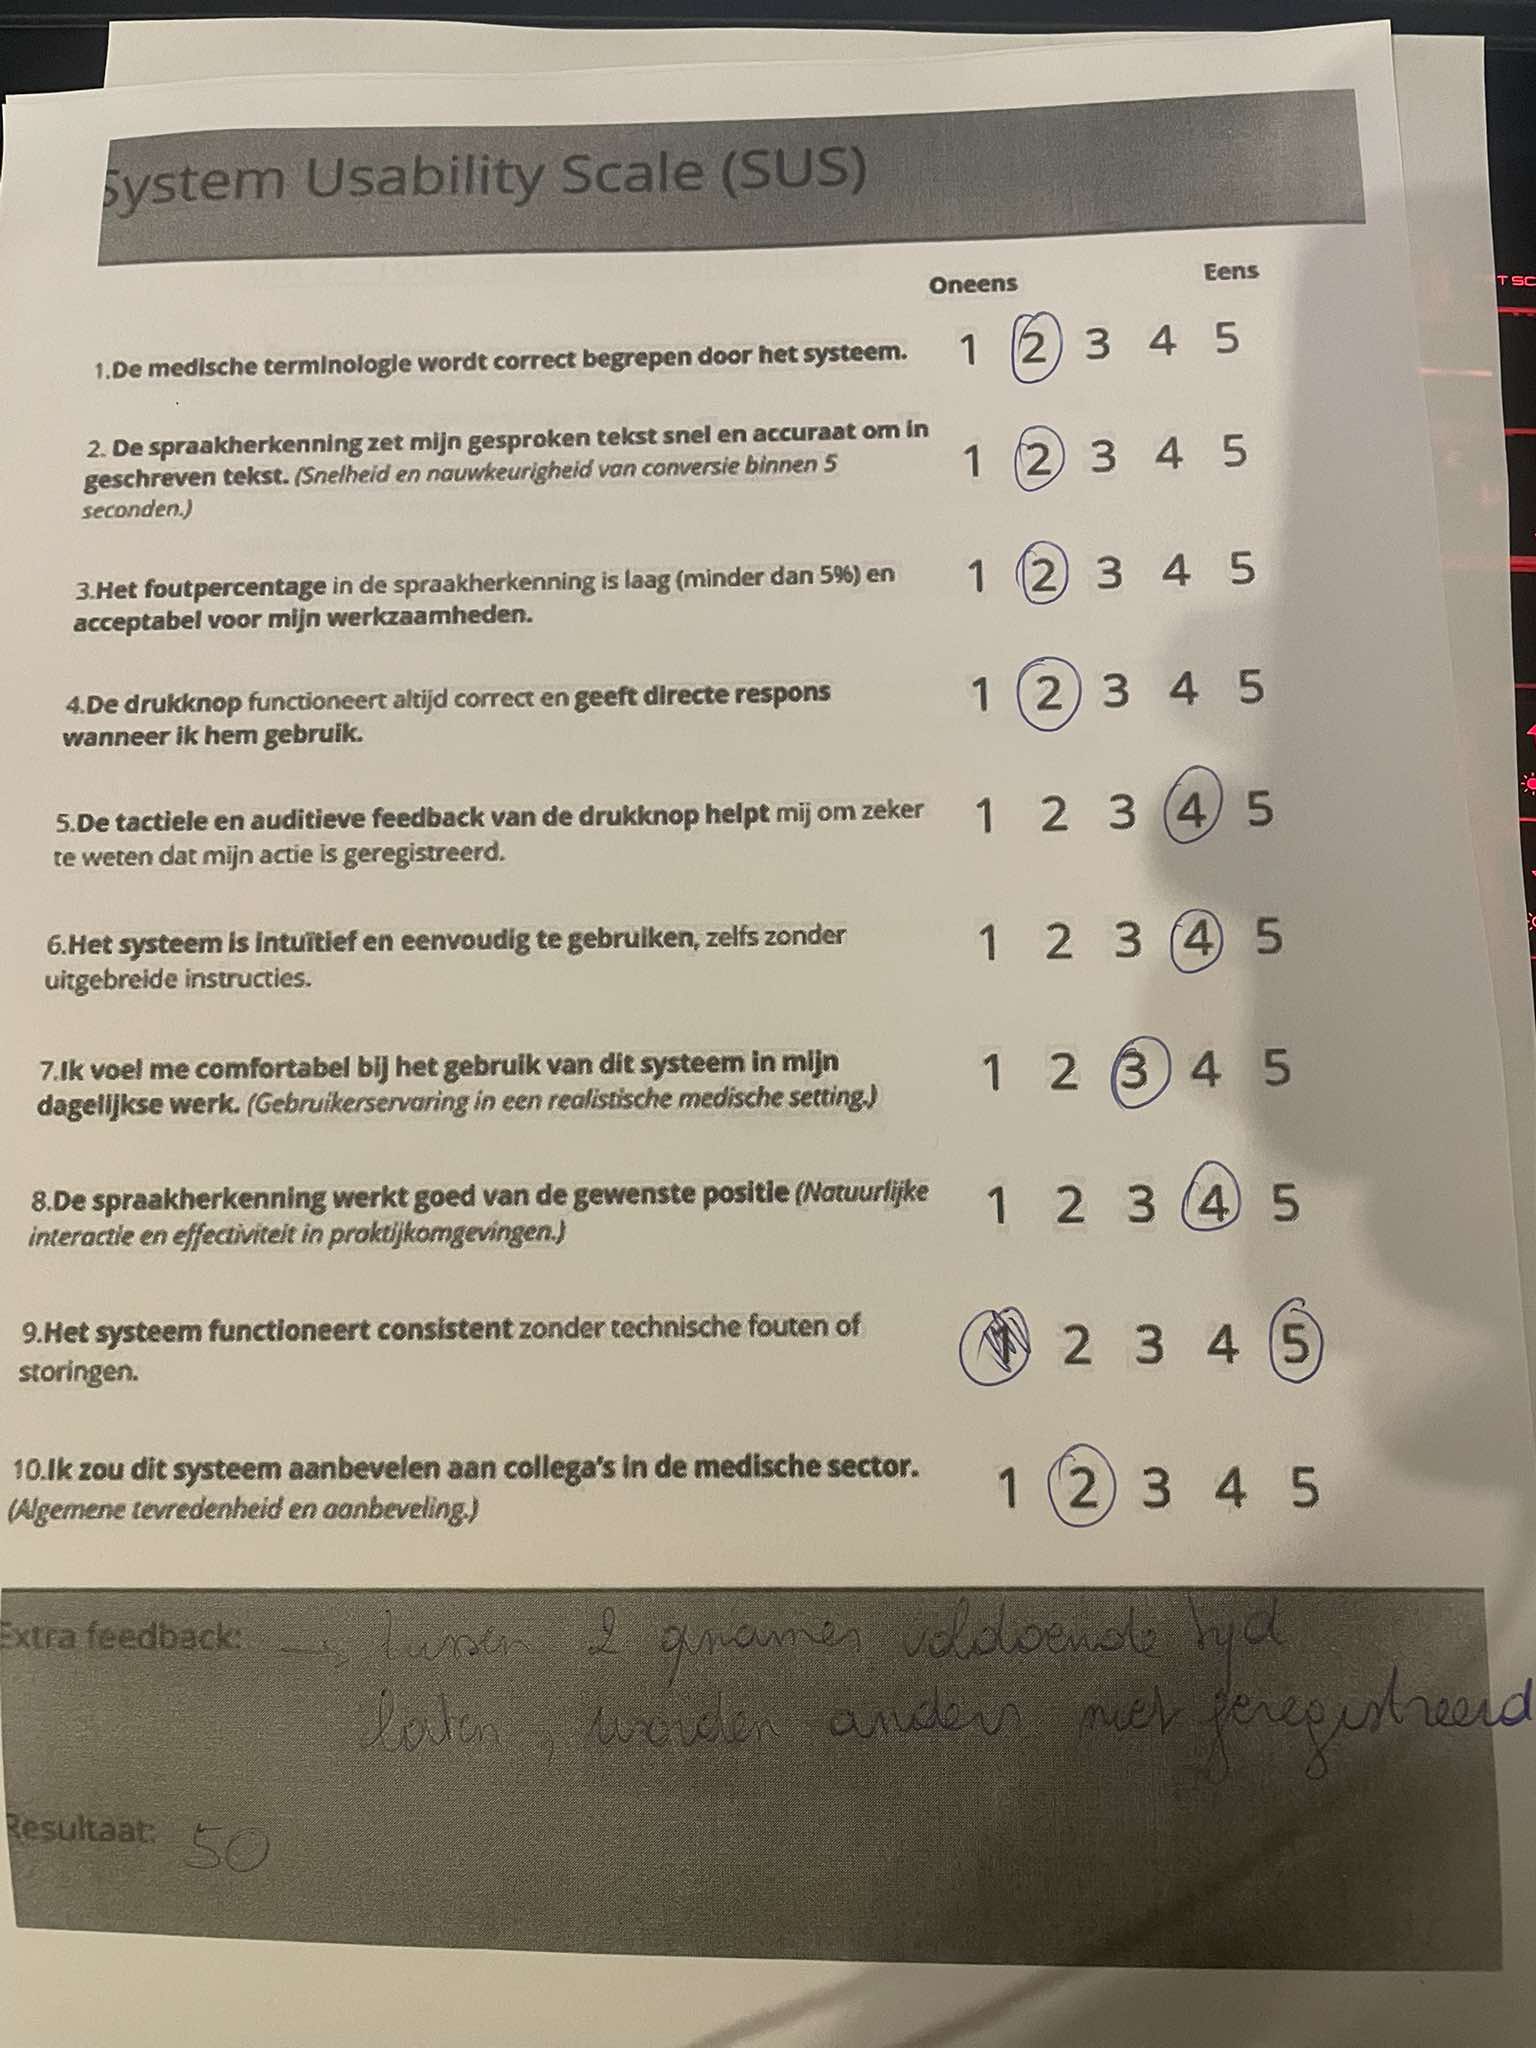 System Usability Scale (SUS)
Oneens Eens
1.De medische terminologie wordt correct begrepen door het systeem. 1 2 3 4 5
2. De spraakherkenning zet mijn gesproken tekst snel en accuraat om in
geschreven tekst. (Snelheid en nauwkeurigheid van conversie binnen 5
seconden.)
1 2 3 4 5
3.Het foutpercentage in de spraakherkenning is laag (minder dan 5%) en
acceptabel voor mijn werkzaamheden.
1 2 3 4 5
4.De drukknop functioneert altijd correct en geeft directe respons
wanneer ik hem gebruik.
1 2 3 4 5
5.De tactiele en auditieve feedback van de drukknop helpt mij om zeker
te weten dat mijn actie is geregistreerd.
1 2 3 4 5
6.Het systeem is intuïtief en eenvoudig te gebruiken, zelfs zonder
uitgebreide instructies.
1 2 3 4 5
7.Ik voel me comfortabel bij het gebruik van dit systeem in mijn
dagelijkse werk. (Gebruikerservaring in een realistische medische setting.)
1 2 3 4 5
8.De spraakherkenning werkt goed van de gewenste positie (Natuurlijke
interactie en effectiviteit in praktijkomgevingen.)
1 2 3 4 5
9.Het systeem functioneert consistent zonder technische fouten of
storingen.
1 2 3 4 5
10.Ik zou dit systeem aanbevelen aan collega's in de medische sector.
(Algemene tevredenheid en aanbeveling.)
1 2 3 4 5
Extra feedback: → tussen 2 opnames voldoende tijd
laten, worden anders niet geregistreerd
Resultaat: 50